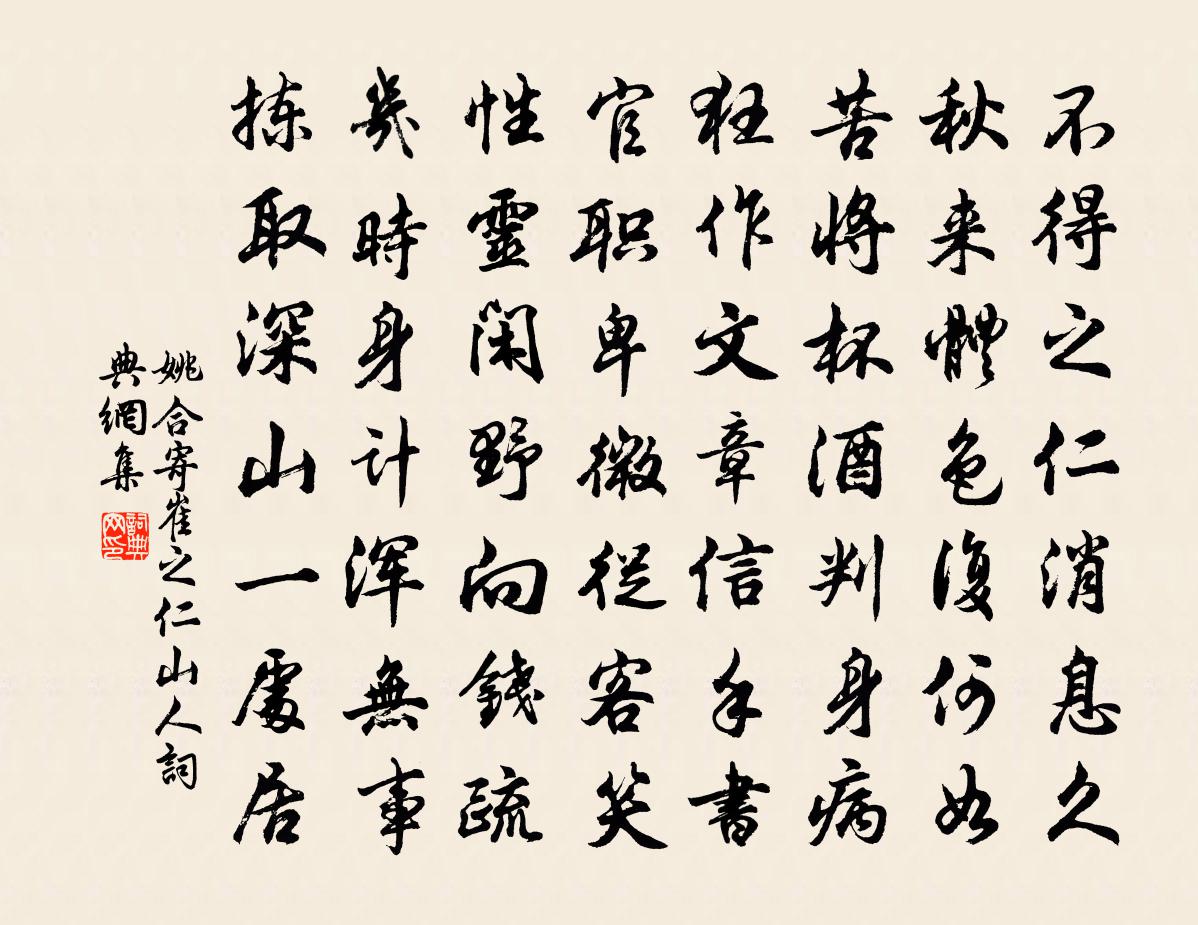 不得之仁消息久
秋来體色復何如
苦將杯酒判身病
狂作文章信手書
官职卑微從客笑
性靈閑野向錢疏
幾時身计浑無事
拣取深山一處居
姚合寄崔之仁山人詞
典網集
詞典
网印